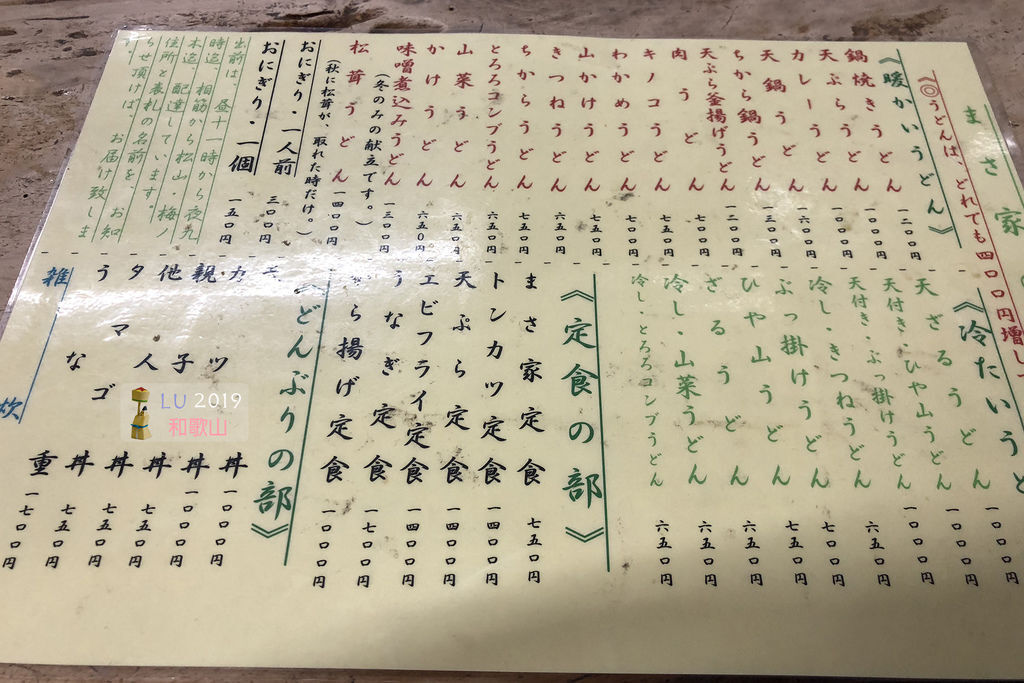 まさ家の
《◎うどんは、どれでも四〇〇円増し
《暖かいうどん》
鍋焼きうどん 一二〇〇円
天ぷらうどん 一〇〇〇円
カレーうどん 一〇〇〇円
天鍋うどん 一三〇〇円
ちから鍋うどん 一三〇〇円
天ぷら釜揚げうどん 一二〇〇円
肉うどん 七〇〇円
キノコうどん 七〇〇円
わかめうどん 七〇〇円
山かけうどん 七五〇円
きつねうどん 六五〇円
ちからうどん 七五〇円
とろろコンブうどん 六五〇円
山菜うどん 六五〇円
かけうどん 六五〇円
味噌煮込みうどん 一三〇〇円
(冬のみの献立です。)
松茸うどん 一四〇〇円
(秋に松茸が、取れた時だけ。)
おにぎり・一人前 三〇〇円
おにぎり・一個 一五〇円
出前は、昼十一時から夜九
時迄、相筋から松山・梅ノ
木迄、配達しています。
住所と表札の名前を、お知
らせ頂けば、お届け致しま
す。
《冷たいうど
天ざるうどん 一〇〇〇円
天付き・ひや山うどん 一〇〇〇円
天付き・ぶっ掛けうどん 一〇〇〇円
冷し・きつねうどん 六五〇円
ぶっ掛けうどん 七〇〇円
ひや山うどん 七五〇円
ざるうどん 六五〇円
冷し・山菜うどん 六五〇円
冷し・とろろコンブうどん 六五〇円
《定食の部》
まさ家定食 七五〇円
トンカツ定食 一四〇〇円
天ぷら定食 一四〇〇円
エビフライ定食 一四〇〇円
うなぎ定食 一七〇〇円
から揚げ定食 一〇〇〇円
《どんぶりの部》
丼 一〇〇〇円
カツ丼 一〇〇〇円
親子丼 七五〇円
他人丼 七五〇円
タマゴ丼 七五〇円
うな重 一七〇〇円
雑炊
LU 2019
和歌山